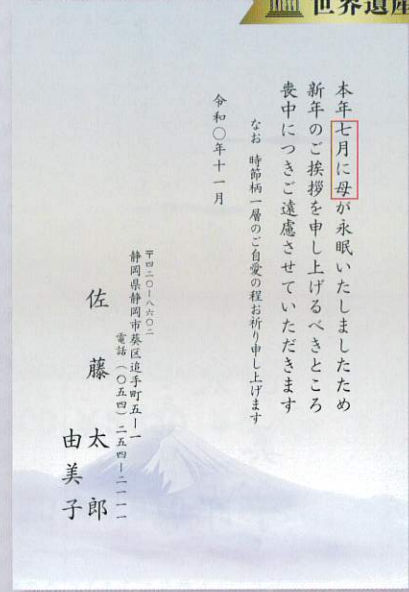 世界遺産
本年七月に母が永眠いたしましたため
新年のご挨拶を申し上げるべきところ
喪中につきご遠慮させていただきます
なお 時節柄一層のご自愛の程お祈り申し上げます
令和〇年十一月
〒四二〇-八六〇二
静岡県静岡市葵区追手町五-一
電話（〇五四）二五四-二一一一
佐藤 太郎
由美子